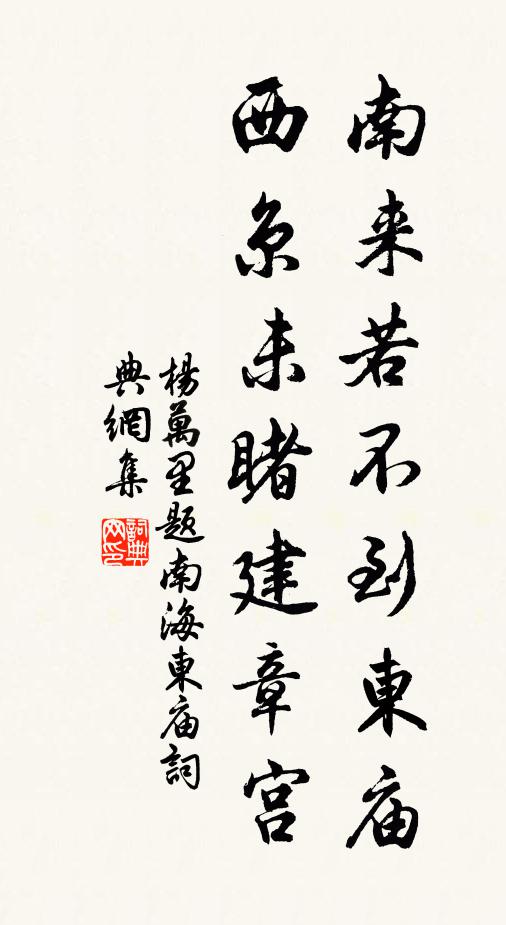 南来若不到東庙
西京未睹建章宫
楊萬里题南海東庙詞
典網集
詞典
网印